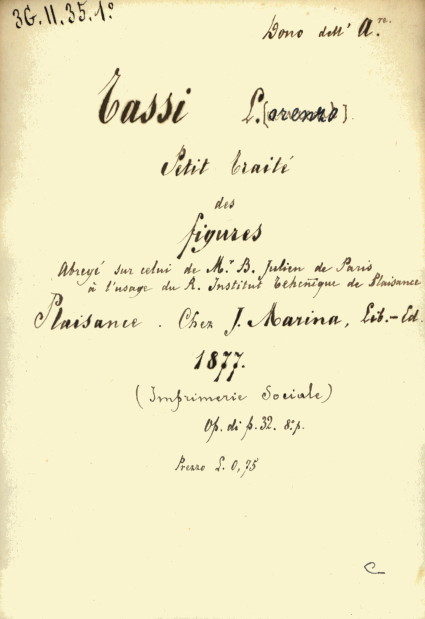 3G.II.35.1º
Dono dell' Are.
Tassi L.[orenzo].
Petit traité
des
figures
Abregé sur celui de Mr. B. Julien de Paris
à l'usage du R. Institut Tehcñique de Plaisance
Plaisance. Chez J. Marina, Lib.-Ed.
1877.
(Imprimerie Sociale)
Op. di p. 32. 8º p.
Prezzo L. 0,75
C